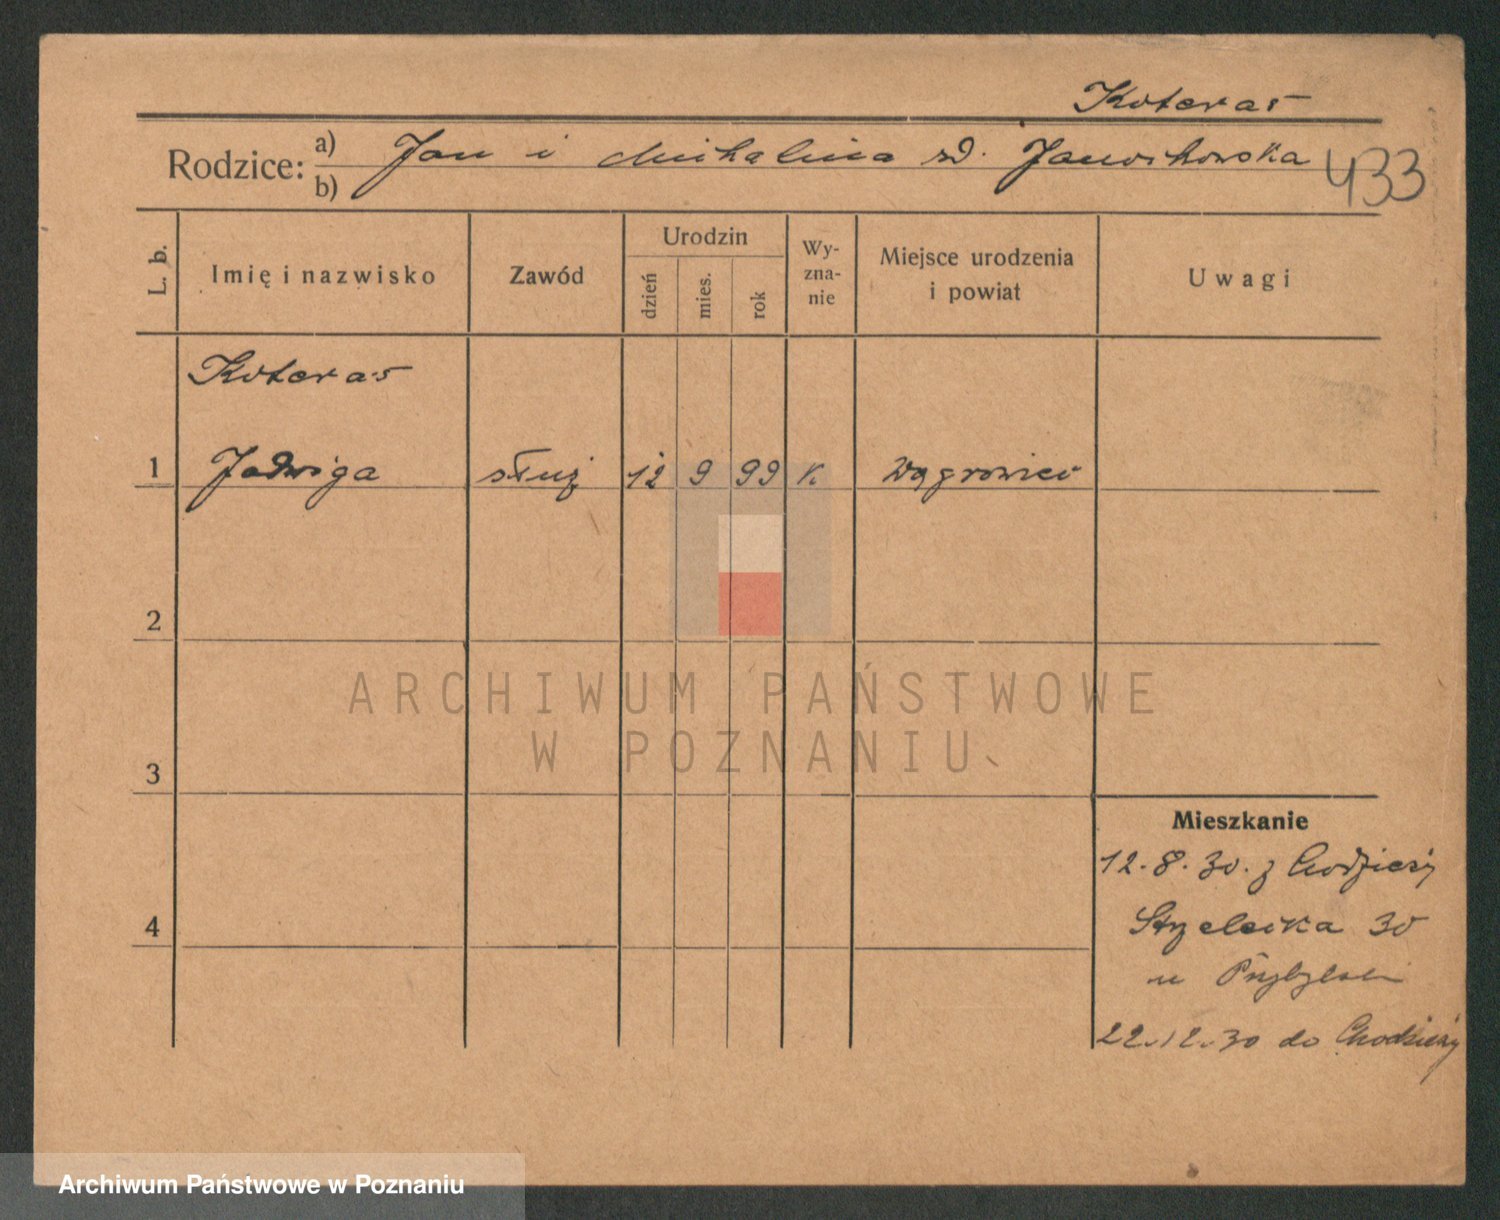 Koteras
Rodzice: a) Jan i Michalina zd. Janichowska
b)
433
L. b.
Imię i nazwisko
Zawód
Urodzin
dzień
mies.
rok
Wy-
zna-
nie
Miejsce urodzenia
i powiat
Uwagi
Koteras
1 Jadwiga służ 12 9 99 k. Wągrowiec
2
3
4
Mieszkanie
12.8.30. z Chodzieży
Strzelecka 30
u Przybylski
22.12.30 do Chodzieży
ARCHIWUM PAŃSTWOWE
W POZNANIU
Archiwum Państwowe w Poznaniu